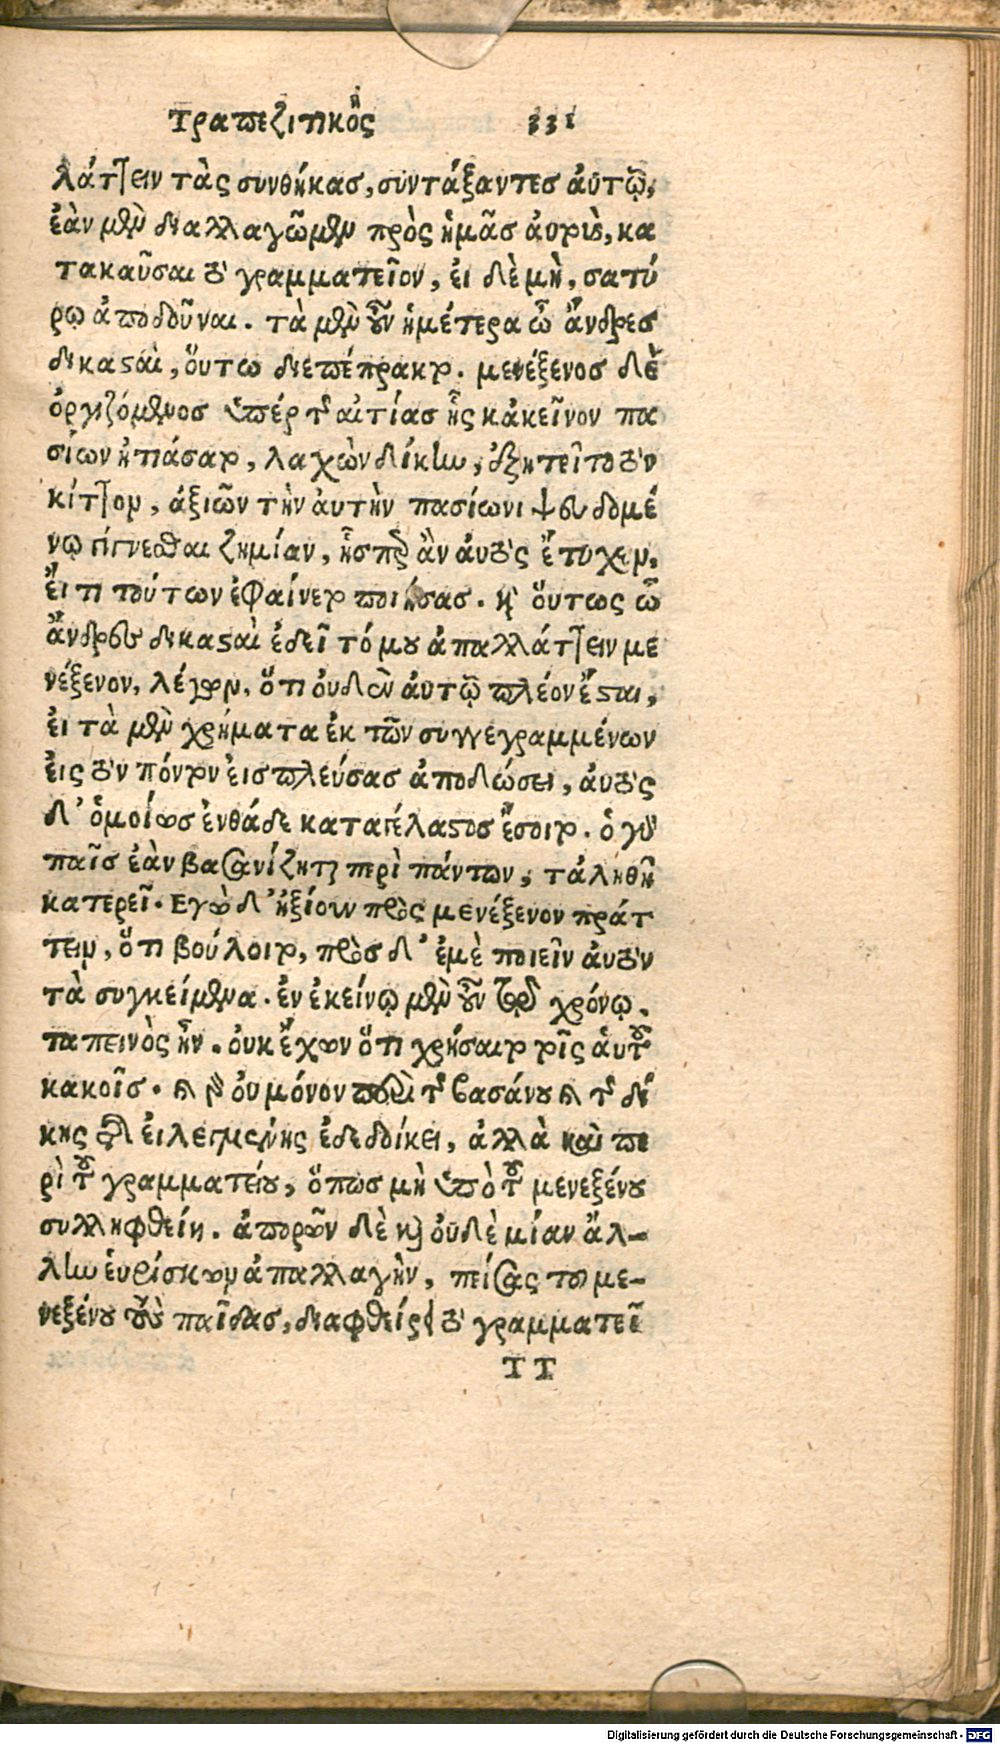 Τραπεζιτικὸς 331
λάττειν τὰς συνθήκας, συντάξαντες ἀυτῷ,
ἐὰν μὲν διαλλαγῶμεν πρὸς ἡμᾶς ἀυτοὺς, κα
τακαῦσαι τὸ γραμματεῖον, ἐι δὲ μὴ, σατύ
ρῳ ἀποδοῦναι. τὰ μὲν οὖν ἡμέτερα ὦ ἄνδρες
δικασαὶ, ὅυτω διεπέπρακτο. μενέξενος δὲ
ὀργιζόμενος ὑπέρ τῆς αἰτίας ἧς κἀκεῖνον πα
σίων ἠτιάσατο, λαχὼν δίκην, ἐξητεῖτο τὸν
κίττον, ἀξιῶν τὴν ἀυτὴν πασίωνι ψευδομέ
νῳ γίγνεσθαι ζημίαν, ἧσπερ ἂν ἀυτὸς ἔτυχεν,
ἔι τι τούτων ἐφαίνετο ποιήσας. καὶ ὅυτως ὦ
ἄνδρες δικασαὶ ἐδεῖτό μου ἀπαλλάττειν με
νέξενον, λέγων, ὅτι ὀυδὲν ἀυτῷ πλέον ἔσται,
ἐι τὰ μὲν χρήματα ἐκ τῶν συγγεγραμμένων
ἐις τὸν πόντον ἐισπλεύσας ἀποδώσει, ἀυτὸς
δ᾽ ὁμοίως ἐνθάδε καταγέλαστος ἔσοιτο. ὁ γὰρ
παῖς ἐὰν βασανίζηται περὶ πάντων, τἀληθῆ
κατερεῖ. Εγὼ δ᾽ ἠξίουν πρὸς μενέξενον πράτ
τειν, ὅτι βούλοιτο, πρὸς δ᾽ ἐμὲ ποιεῖν ἀυτὸν
τὰ συγκείμενα. ἐν ἐκείνῳ μὲν οὖν τῷ χρόνῳ.
ταπεινὸς ἦν. ὀυκ ἔχων ὅτι χρήσαιτο τοῖς ἁυτοῦ
κακοῖς. καὶ γὰρ ὀυ μόνον περὶ τῆς βασάνου καὶ τῆς δί
κης τῆς ἐιλεγμένης ἐδεδοίκει, ἀλλὰ καὶ πε
ρὶ τοῦ γραμματείου, ὅπως μὴ ὑπὸ τοῦ μενεξένου
συλληφθείη. ἀπορῶν δὲ καὶ ὀυδὲ μίαν ἄλ-
λην ἑυρίσκων ἀπαλλαγὴν, πείσας τοῦ με-
νεξένου τοὺς παῖδας, διαφθείρει τὸ γραμματεῖ
ΤΤ
Digitalisierung gefördert durch die Deutsche Forschungsgemeinschaft - DFG